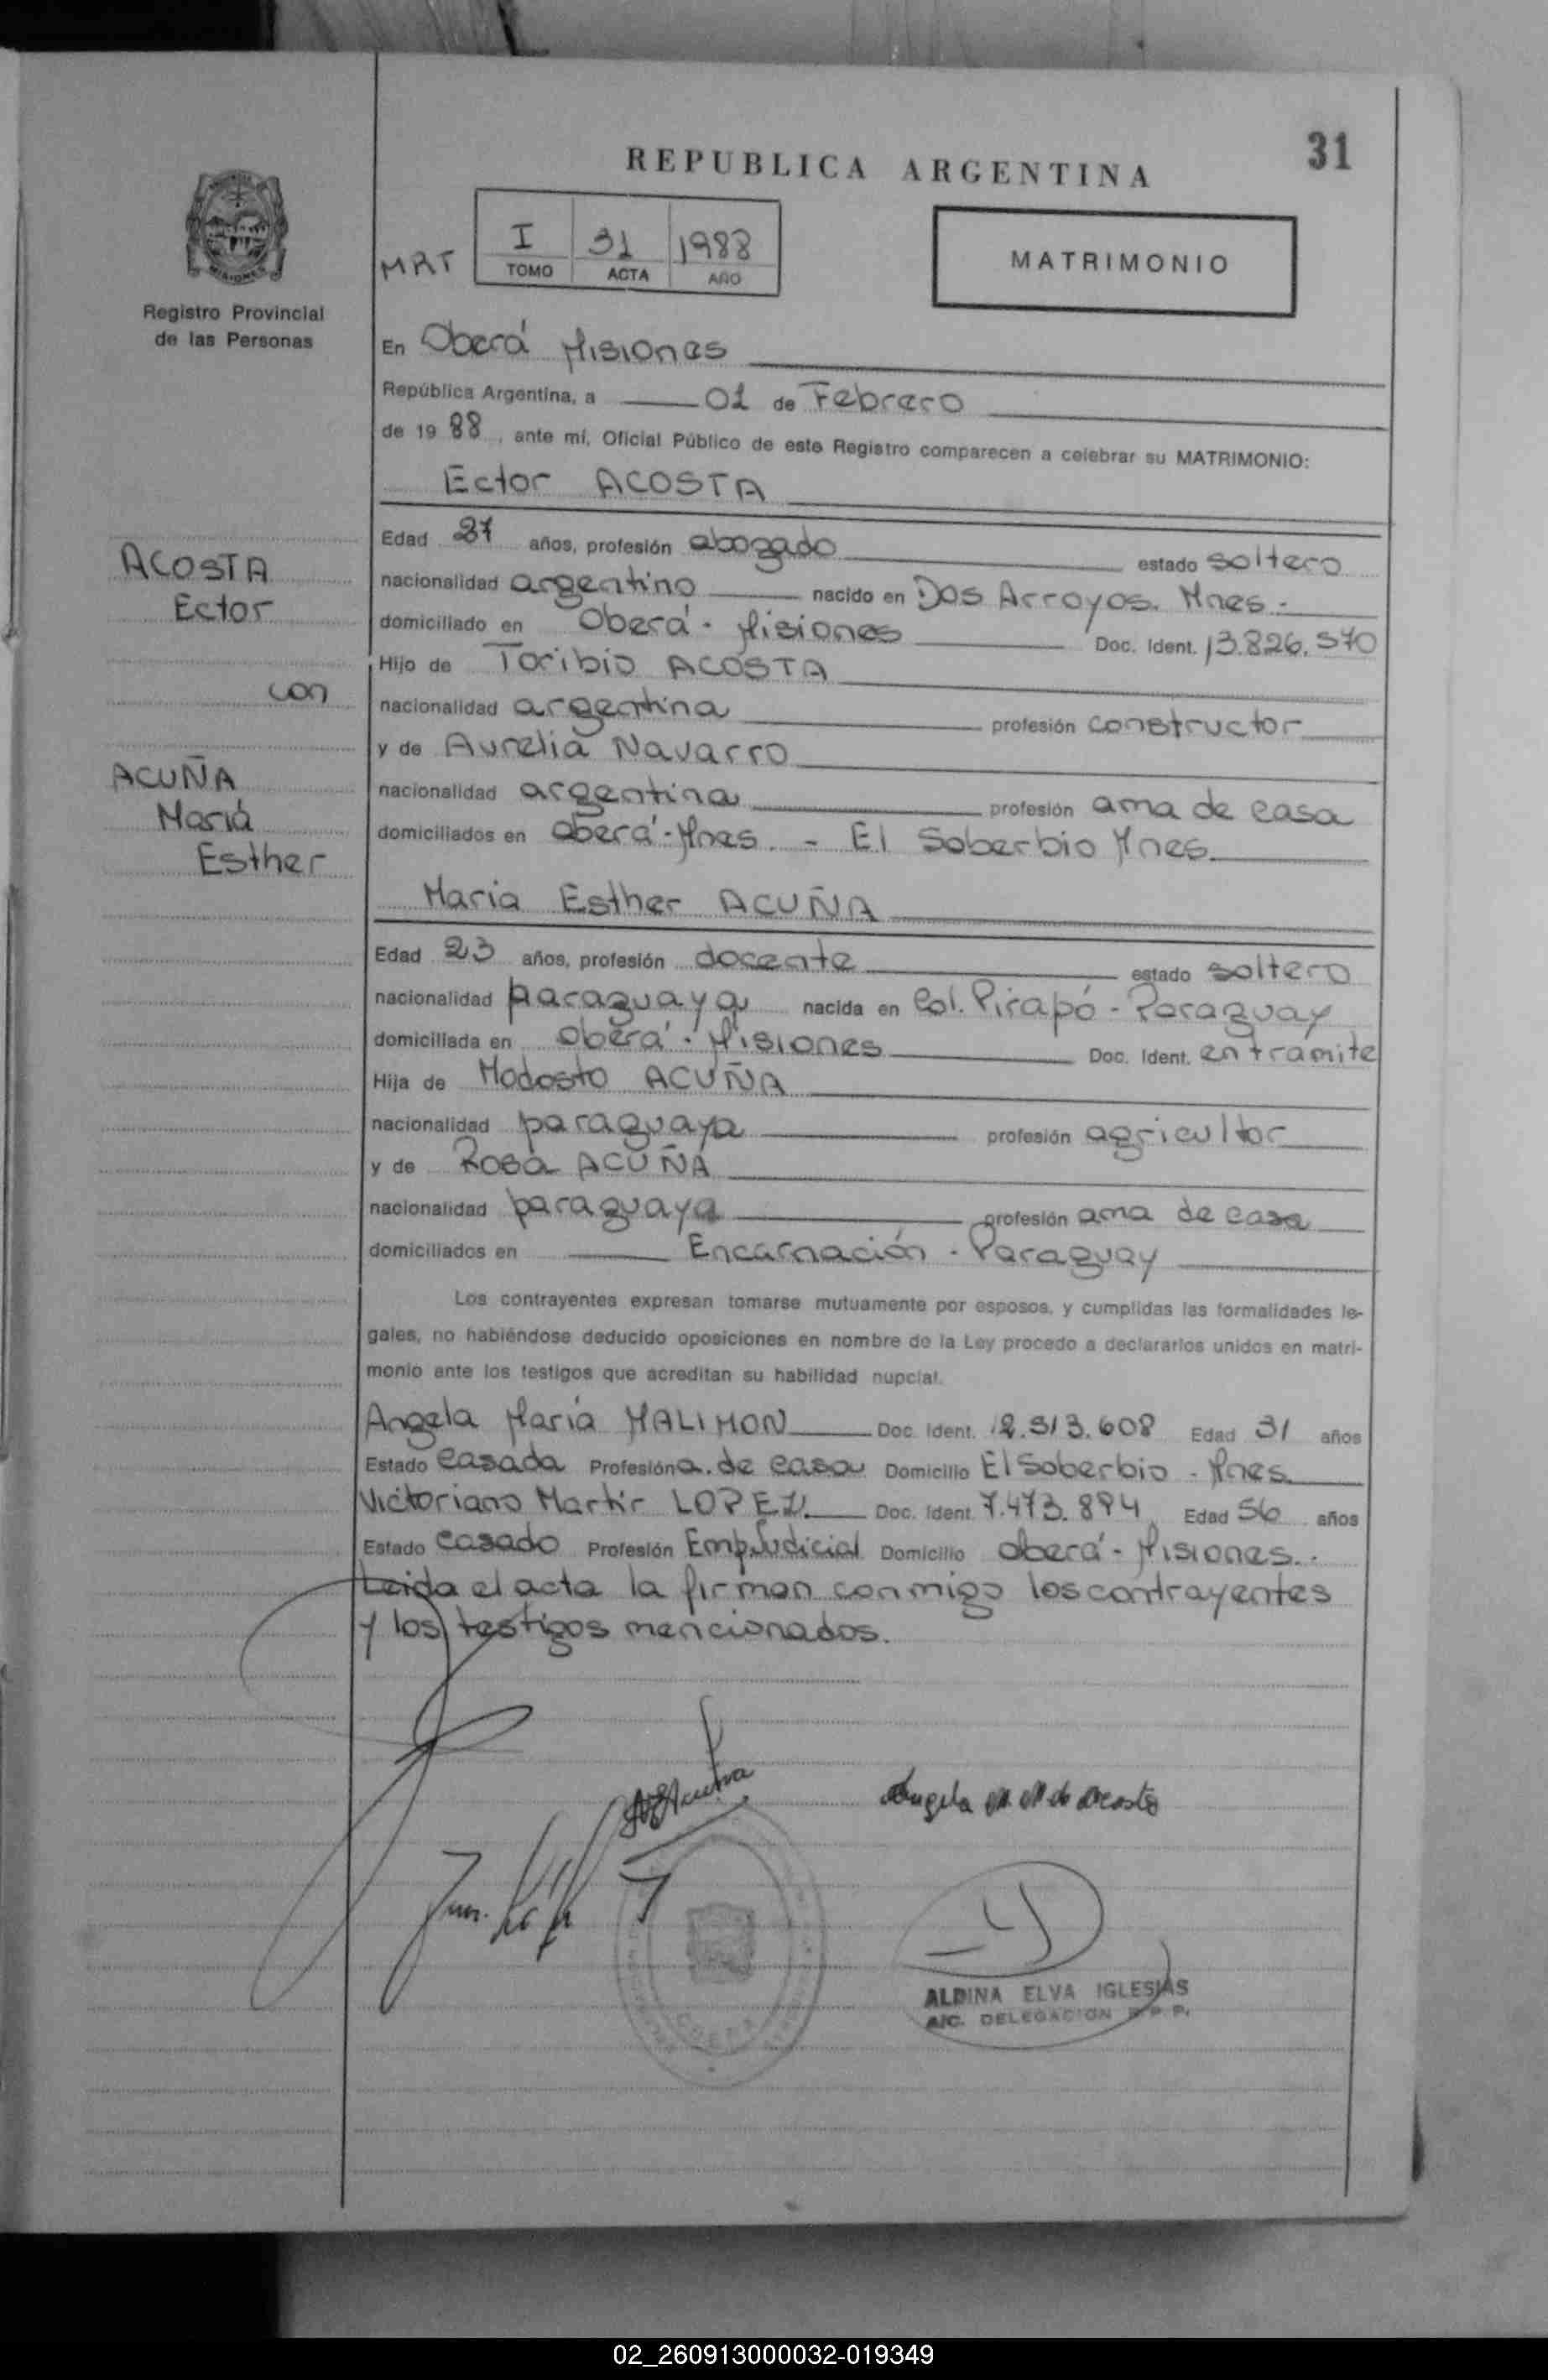 31
REPUBLICA ARGENTINA
Registro Provincial
de las Personas
MRT
I 31 1988
TOMO ACTA AÑO
MATRIMONIO
En Oberá Misiones
República Argentina, a 01 de Febrero
de 19 88, ante mí, Oficial Público de este Registro comparecen a celebrar su MATRIMONIO:
Ector ACOSTA
ACOSTA
Ector
con
ACUÑA
Mariá
Esther
Edad 27 años, profesión abogado estado soltero
nacionalidad argentino nacido en Dos Arroyos. Mnes.-
domiciliado en Oberá - Misiones Doc. Ident. 13.826.570
Hijo de Toribio ACOSTA
nacionalidad argentina profesión constructor
y de Aurelia Navarro
nacionalidad argentina profesión ama de casa
domiciliados en Oberá - Mnes. - El Soberbio Mnes.
Maria Esther ACUÑA
Edad 23 años, profesión docente estado soltero
nacionalidad paraguaya nacida en Col. Pirapó - Paraguay
domiciliada en Oberá - Misiones Doc. Ident. en tramite
Hija de Modosto ACUÑA
nacionalidad paraguaya profesión agricultor
y de Rosa ACUÑA
nacionalidad paraguaya profesión ama de casa
domiciliados en Encarnación - Paraguay
Los contrayentes expresan tomarse mutuamente por esposos, y cumplidas las formalidades le-
gales, no habiéndose deducido oposiciones en nombre de la Ley procedo a declararlos unidos en matri-
monio ante los testigos que acreditan su habilidad nupcial.
Angela María MALIMON Doc. Ident. 12.513.608 Edad 31 años
Estado Casada Profesión a. de casa Domicilio El Soberbio - Mnes.
Victoriano Martír LOPEZ. Doc. Ident. 7.473.894 Edad 56 años
Estado Casado Profesión Emp. Judicial Domicilio Oberá - Misiones.-
Leida el acta la firman conmigo los contrayentes
y los testigos mencionados.
Angela M. M. de Acosta
ALDINA ELVA IGLESIAS
A/C. DELEGACION R. P. P.
02_260913000032-019349